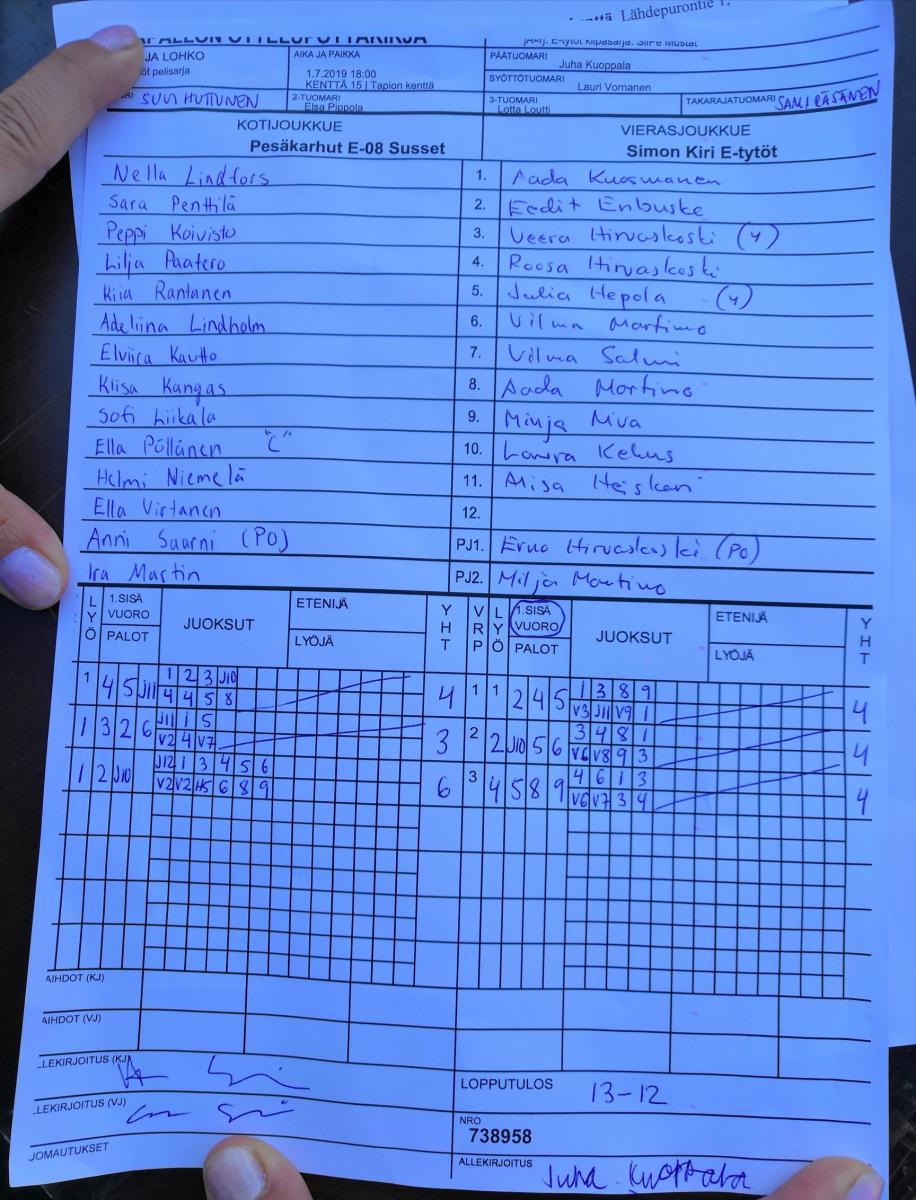 Lähdepurontie 1,
JA LOHKO
AIKA JA PAIKKA
1.7.2019 18:00
KENTTÄ 15 | Tapion kenttä
PÄÄTUOMARI
Juha Kuoppala
SYÖTTÖTUOMARI
Lauri Vornanen
SUVI HUTTUNEN
2-TUOMARI
Elsa Pippola
3-TUOMARI
Lotta Loutti
TAKARAJATUOMARI SAMI RÄSÄNEN
KOTIJOUKKUE
Pesäkarhut E-08 Susset
VIERASJOUKKUE
Simon Kiri E-tytöt
Nella Lindfors 1. Aada Kuosmanen
Sara Penttilä 2. Eedit Enbuske
Peppi Koivisto 3. Veera Hirvaskoski (4)
Lilja Paatero 4. Roosa Hirvaskoski
Kiia Rantanen 5. Julia Hepola (4)
Adeliina Lindholm 6. Vilma Martimo
Elviira Kautto 7. Vilma Salmi
Kiisa Kangas 8. Aada Martimo
Sofi Liikala 9. Minja Niva
Ella Pöllänen "C" 10. Laura Kehus
Helmi Niemelä 11. Alisa Heiskari
Ella Virtanen 12.
Anni Saarni (PO) PJ1. Erno Hirvaskoski (PO)
Ira Martin PJ2. Milja Martimo
LYÖ 1.SISÄ VUORO PALOT JUOKSUT ETENIJÄ LYÖJÄ YHT VRP LYÖ 1.SISÄ VUORO PALOT JUOKSUT ETENIJÄ LYÖJÄ YHT
1 2 3 J10
1 4 5 J11 4 4 5 8 4
1 1 2 4 5 1 3 8 9
V3 J11 V9 1 4
J11 1 5
1 3 2 6 V2 4 V7 3
2 2 J10 5 6 3 4 8 1
V6 V8 9 3 4
J12 1 3 4 5 6
1 2 J10 V2 V2 H5 6 8 9 6
3 4 5 8 9 4 6 1 3
V6 V7 3 4 4
AIHDOT (KJ)
AIHDOT (VJ)
LEKIRJOITUS (KJ)
LOPPUTULOS 13-12
LEKIRJOITUS (VJ)
NRO
738958
JOMAUTUKSET
ALLEKIRJOITUS Juha Kuoppala